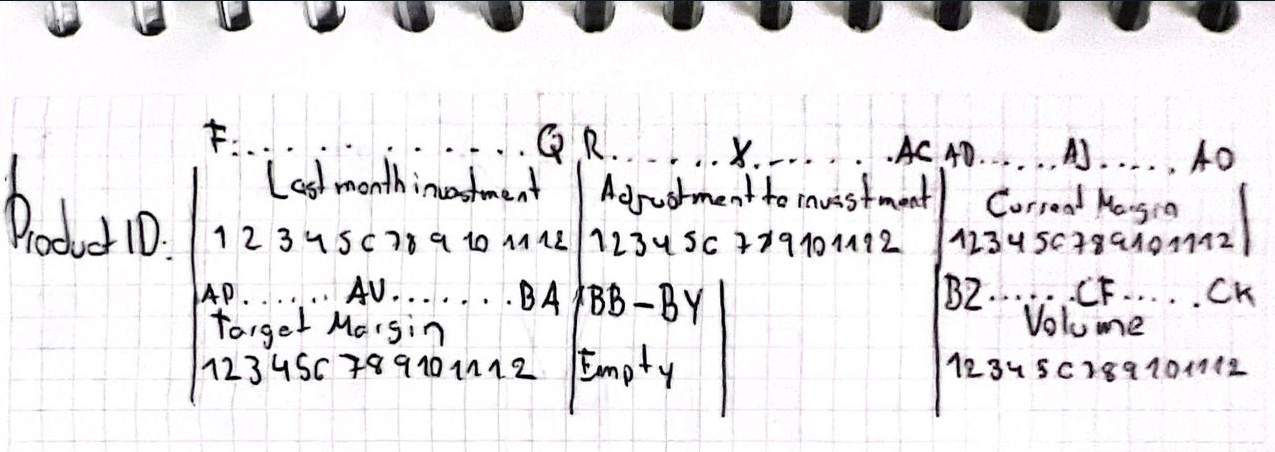 F:. . . . . . . . . . . . Q R. . . . . . . X. . . . . . . .AC AD. . . . . AJ. . . . . . AO
Last month invastment Adjustment to invastment Current Margin
Product ID:
1 2 3 4 5 6 7 8 9 10 11 12 1 2 3 4 5 6 7 8 9 10 11 12 1 2 3 4 5 6 7 8 9 10 11 12
AP. . . . . . AV. . . . . . . BA BB-BY BZ. . . . . .CF. . . . . .CK
Target Margin Volume
1 2 3 4 5 6 7 8 9 10 11 12 Empty 1 2 3 4 5 6 7 8 9 10 11 12